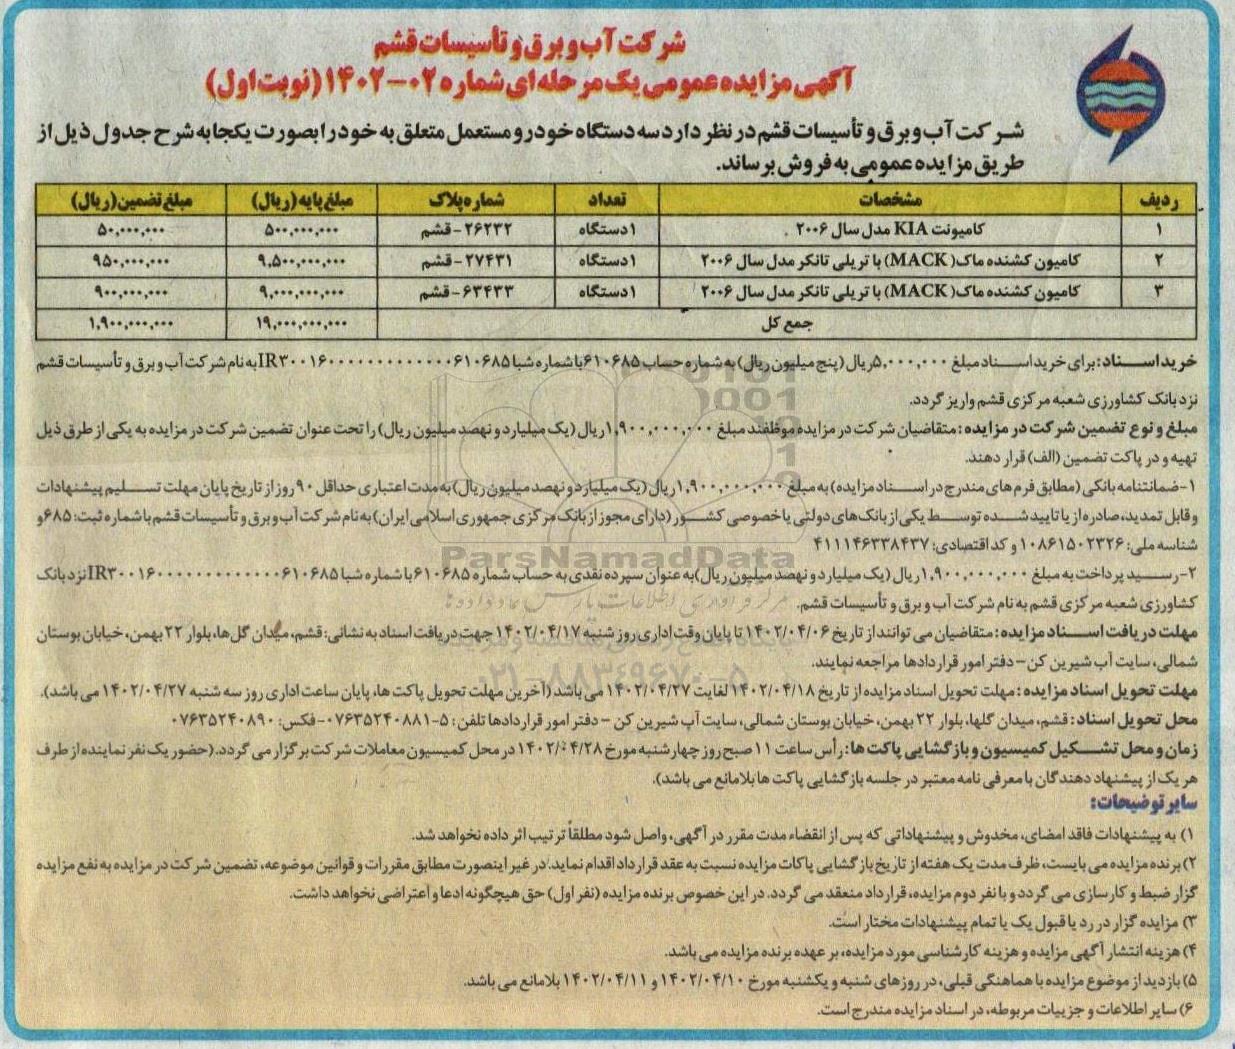 شرکت آب و برق و تأسیسات قشم
آگهی مزایده عمومی یک مرحله ای شماره ۰۲-۱۴۰۲ (نوبت اول)
شرکت آب و برق و تأسیسات قشم در نظر دارد سه دستگاه خودرو مستعمل متعلق به خود را بصورت یکجا به شرح جدول ذیل از
طریق مزایده عمومی به فروش برساند.
ردیف مشخصات تعداد شماره پلاک مبلغ پایه (ریال) مبلغ تضمین (ریال)
۱ کامیونت KIA مدل سال ۲۰۰۶ ۱ دستگاه ۲۶۲۳۲-قشم ۵۰۰,۰۰۰,۰۰۰ ۵۰,۰۰۰,۰۰۰
۲ کامیون کشنده ماک (MACK) با تریلی تانکر مدل سال ۲۰۰۶ ۱ دستگاه ۲۷۴۳۱-قشم ۹,۵۰۰,۰۰۰,۰۰۰ ۹۵۰,۰۰۰,۰۰۰
۳ کامیون کشنده ماک (MACK) با تریلی تانکر مدل سال ۲۰۰۶ ۱ دستگاه ۶۳۴۳۳-قشم ۹,۰۰۰,۰۰۰,۰۰۰ ۹۰۰,۰۰۰,۰۰۰
جمع کل ۱۹,۰۰۰,۰۰۰,۰۰۰ ۱,۹۰۰,۰۰۰,۰۰۰
خرید اسناد: برای خرید اسناد مبلغ ۵,۰۰۰,۰۰۰ ریال (پنج میلیون ریال) به شماره حساب ۶۱۰۶۸۵ با شماره شبا IR۳۰۰۱۶۰۰۰۰۰۰۰۰۰۰۰۰۰۰۶۱۰۶۸۵ به نام شرکت آب و برق و تأسیسات قشم
نزد بانک کشاورزی شعبه مرکزی قشم واریز گردد.
مبلغ و نوع تضمین شرکت در مزایده: متقاضیان شرکت در مزایده موظفند مبلغ ۱,۹۰۰,۰۰۰,۰۰۰ ریال (یک میلیارد و نهصد میلیون ریال) را تحت عنوان تضمین شرکت در مزایده به یکی از طرق ذیل
تهیه و در پاکت تضمین (الف) قرار دهند.
۱- ضمانتنامه بانکی (مطابق فرم های مندرج در اسناد مزایده) به مبلغ ۱,۹۰۰,۰۰۰,۰۰۰ ریال (یک میلیارد و نهصد میلیون ریال) به مدت اعتباری حداقل ۹۰ روز از تاریخ پایان مهلت تسلیم پیشنهادات
و قابل تمدید، صادره از یا تایید شده توسط یکی از بانک های دولتی یا خصوصی کشور (دارای مجوز از بانک مرکزی جمهوری اسلامی ایران) به نام شرکت آب و برق و تأسیسات قشم با شماره ثبت: ۶۸۵ و
شناسه ملی: ۱۰۸۶۱۵۰۲۳۲۶ و کد اقتصادی: ۴۱۱۱۴۶۳۳۸۴۳۷
ParsNamadData
۲- رسید پرداخت به مبلغ ۱,۹۰۰,۰۰۰,۰۰۰ ریال (یک میلیارد و نهصد میلیون ریال) به عنوان سپرده نقدی به حساب شماره ۶۱۰۶۸۵ با شماره شبا IR۳۰۰۱۶۰۰۰۰۰۰۰۰۰۰۰۰۰۰۶۱۰۶۸۵ نزد بانک
کشاورزی شعبه مرکزی قشم به نام شرکت آب و برق و تأسیسات قشم.
مهلت دریافت اسناد مزایده: متقاضیان می توانند از تاریخ ۱۴۰۲/۰۴/۰۶ تا پایان وقت اداری روز شنبه ۱۴۰۲/۰۴/۱۷ جهت دریافت اسناد به نشانی: قشم، میدان گل ها، بلوار ۲۲ بهمن، خیابان بوستان
شمالی، سایت آب شیرین کن - دفتر امور قراردادها مراجعه نمایند.
۰۲۱-۸۸۳۴۹۶۷۰-۵
مهلت تحویل اسناد مزایده: مهلت تحویل اسناد مزایده از تاریخ ۱۴۰۲/۰۴/۱۸ لغایت ۱۴۰۲/۰۴/۲۷ می باشد (آخرین مهلت تحویل پاکت ها، پایان ساعت اداری روز سه شنبه ۱۴۰۲/۰۴/۲۷ می باشد).
محل تحویل اسناد: قشم، میدان گلها، بلوار ۲۲ بهمن، خیابان بوستان شمالی، سایت آب شیرین کن - دفتر امور قراردادها تلفن: ۵-۰۷۶۳۵۲۴۰۸۸۱- فکس: ۰۷۶۳۵۲۴۰۸۹۰
زمان و محل تشکیل کمیسیون و بازگشایی پاکت ها: رأس ساعت ۱۱ صبح روز چهارشنبه مورخ ۱۴۰۲/۰۴/۲۸ در محل کمیسیون معاملات شرکت برگزار می گردد. (حضور یک نفر نماینده از طرف
هر یک از پیشنهاد دهندگان با معرفی نامه معتبر در جلسه بازگشایی پاکت ها بلامانع می باشد).
سایر توضیحات:
۱) به پیشنهادات فاقد امضای، مخدوش و پیشنهاداتی که پس از انقضاء مدت مقرر در آگهی، واصل شود مطلقاً ترتیب اثر داده نخواهد شد.
۲) برنده مزایده می بایست، ظرف مدت یک هفته از تاریخ بازگشایی پاکات مزایده نسبت به عقد قرارداد اقدام نماید. در غیر اینصورت مطابق مقررات و قوانین موضوعه، تضمین شرکت در مزایده به نفع مزایده
گزار ضبط و کارسازی می گردد و با نفر دوم مزایده، قرارداد منعقد می گردد. در این خصوص برنده مزایده (نفر اول) حق هیچگونه ادعا و اعتراضی نخواهد داشت.
۳) مزایده گزار در رد یا قبول یک یا تمام پیشنهادات مختار است.
۴) هزینه انتشار آگهی مزایده و هزینه کارشناسی مورد مزایده، بر عهده برنده مزایده می باشد.
۵) بازدید از موضوع مزایده با هماهنگی قبلی، در روزهای شنبه و یکشنبه مورخ ۱۴۰۲/۰۴/۱۰ و ۱۴۰۲/۰۴/۱۱ بلامانع می باشد.
۶) سایر اطلاعات و جزییات مربوطه، در اسناد مزایده مندرج است.